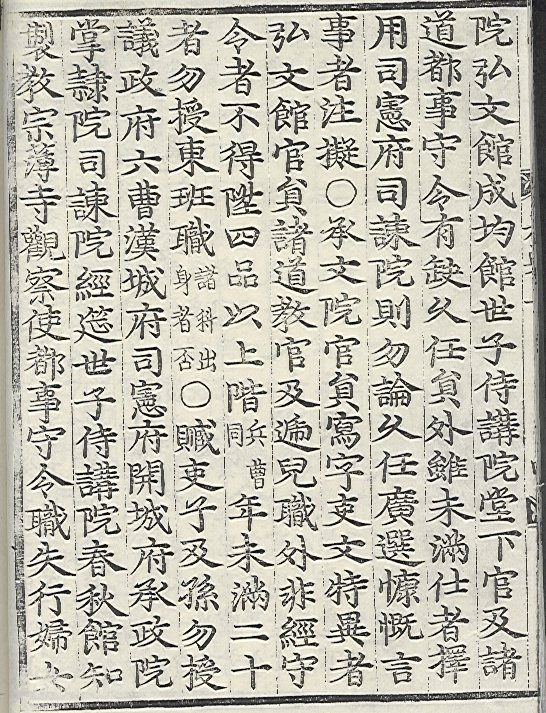 院弘文館成均館世子侍講院堂下官及諸
道都事守令有缺久任貟外雖未滿仕者擇
用司憲府司諫院則勿論久任廣選慷慨言
事者注擬○承文院官貟寫字吏文特異者
弘文館官貟諸道敎官及遞兒職外非經守
令者不得陞四品以上階兵曹同年未滿二十
者勿授東班職諸科出身者否○贓吏子及孫勿授
議政府六曹漢城府司憲府開城府承政院
掌隷院司諫院經筵世子侍講院春秋館知
製敎宗簿寺觀察使都事守令職失行婦女